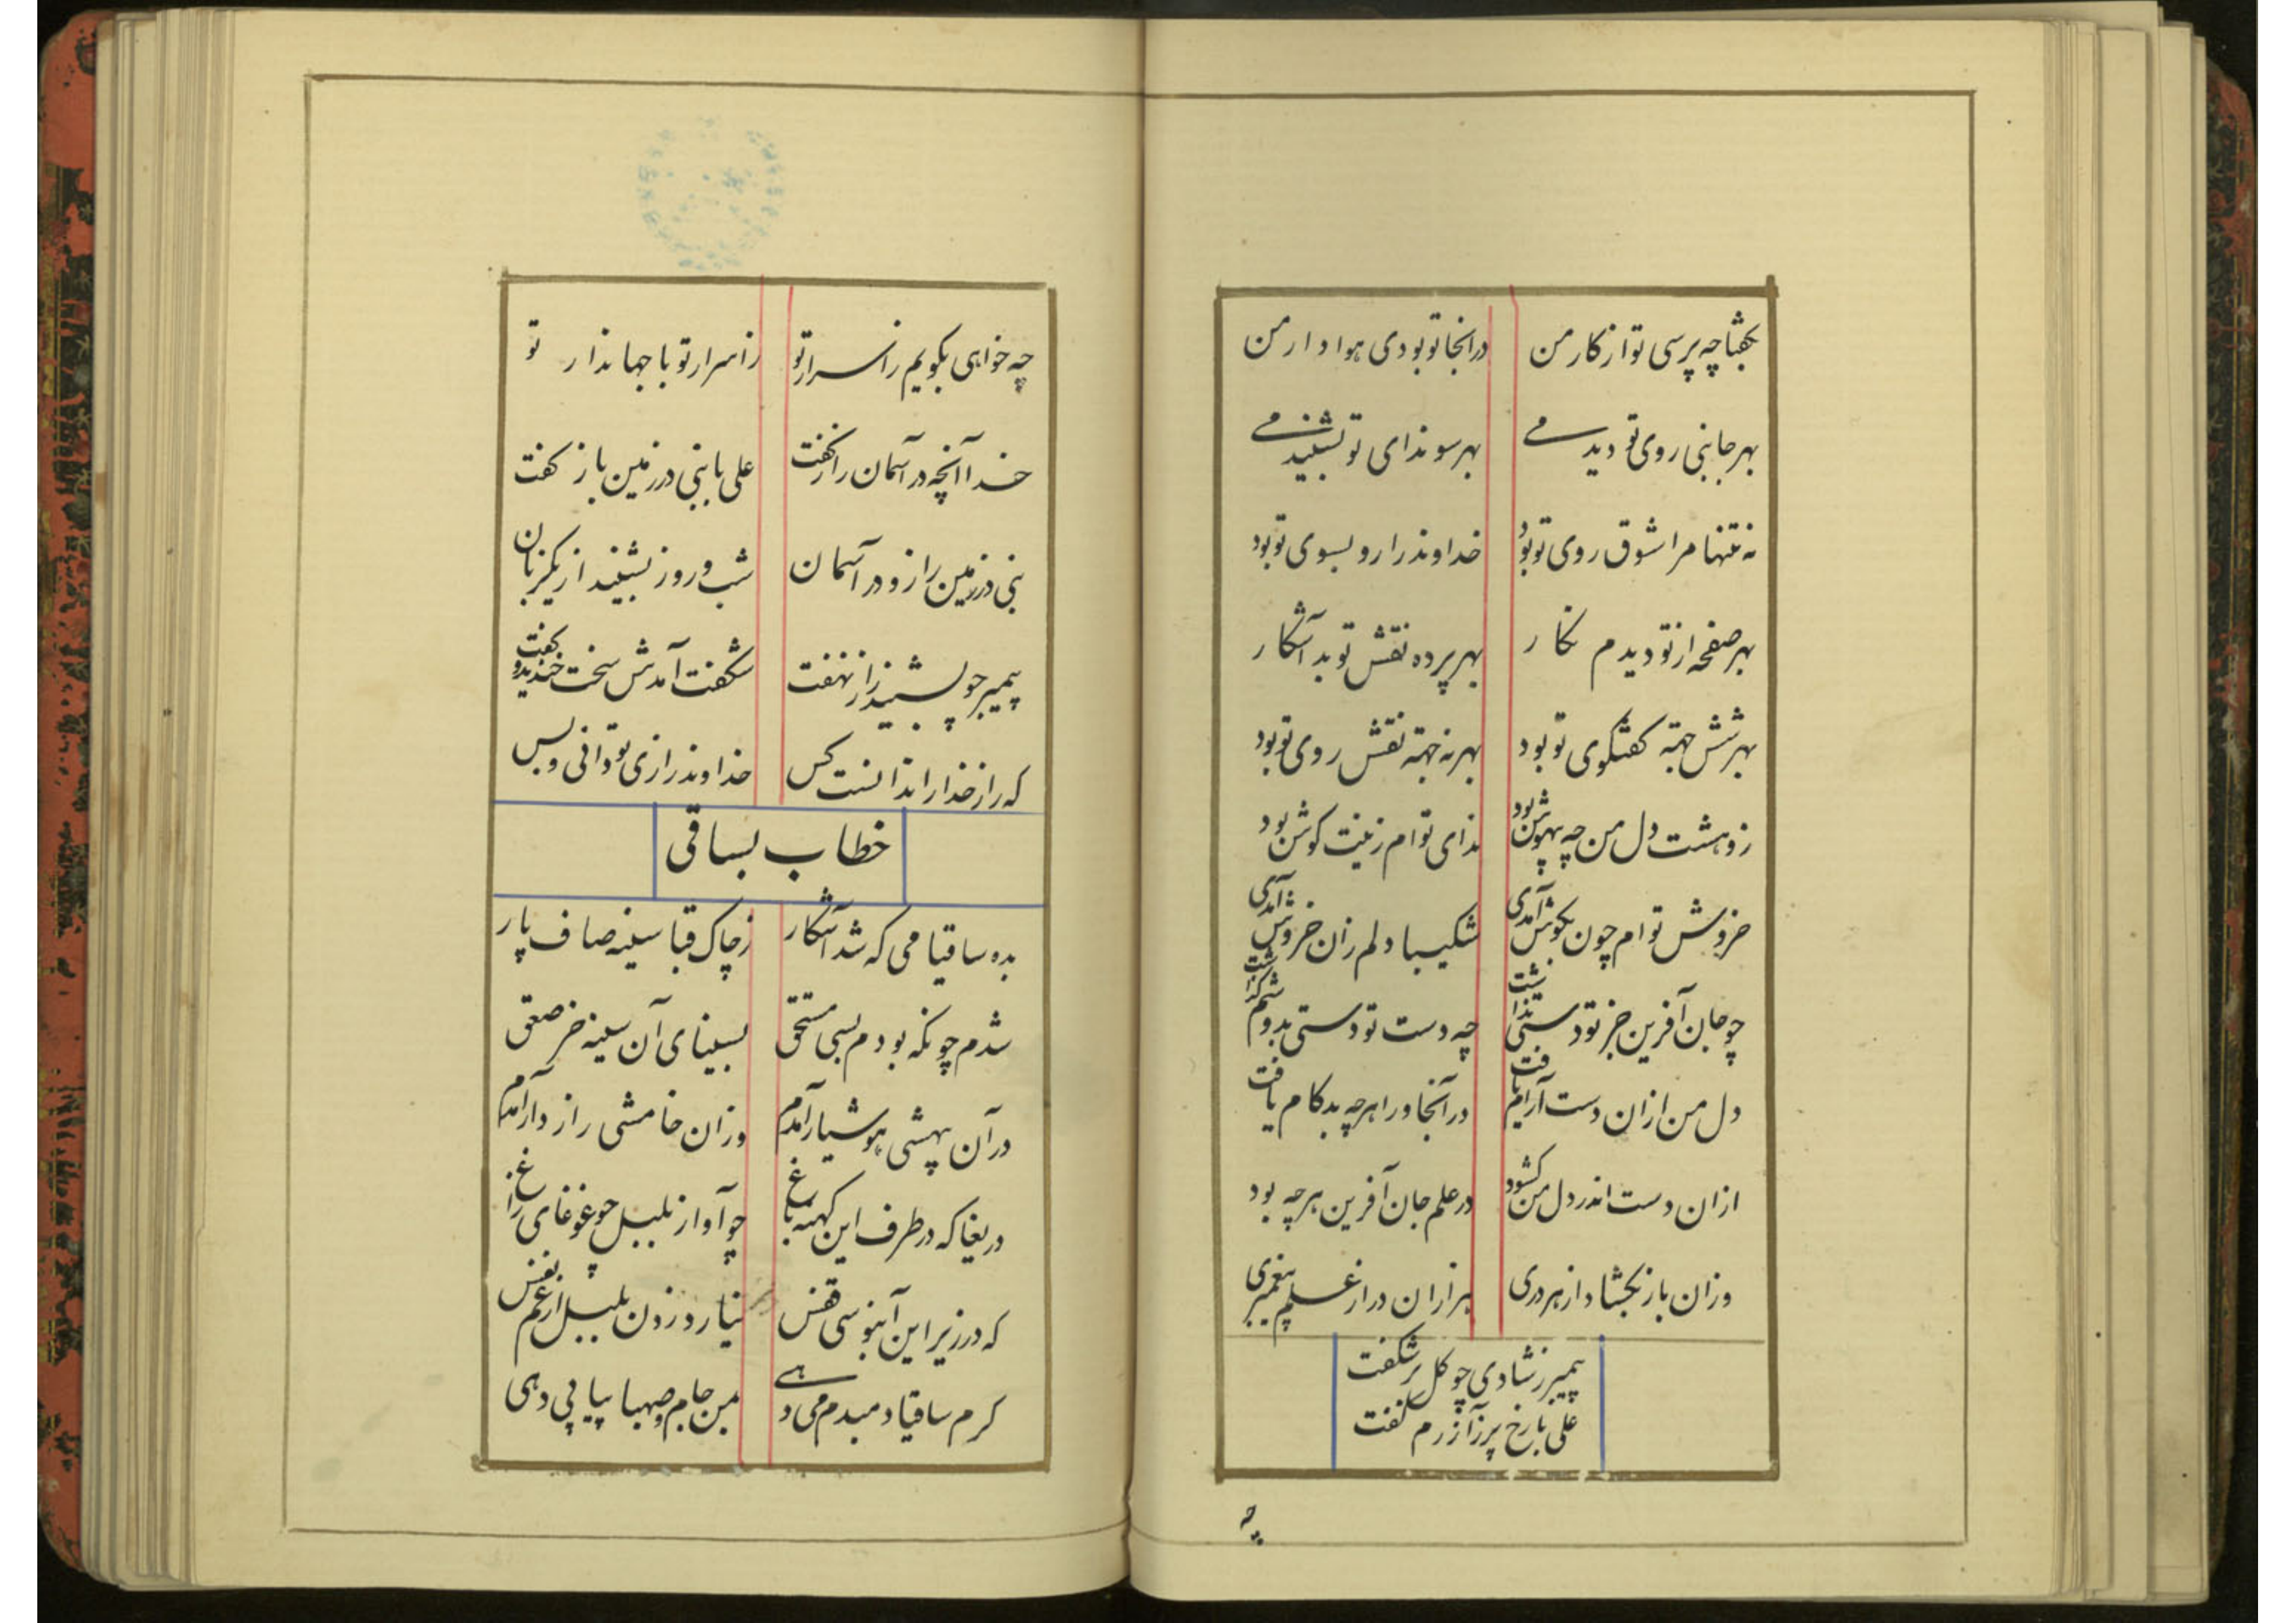 بگفتا چه پرسی تو از کار من
درانجا تو بودی هوادار من
بهر جا بنی روی تو دیدمی
بهر سو ندای تو بشنیدمی
نه تنها مرا شوق روی تو بود
خداوند را رو بسوی تو بود
بهر صفحه از تو دیدم نکار
بهر پرده نقش تو بد آشکار
بهر شش جهة کفتکوی تو بود
بهر نه جهة نقش روی تو بود
ز وهشت دل من چه بیهوش بود
ندای توام زینت کوش بود
خروش توام چون بکوش آمدی
شکیبا دلم زان خروش آمدی
چو جان آفرین جز تو دستی نداشت
چه دست تو دستی بدوشم گذاشت
دل من ازان دست آرام یافت
در آنجا ورا هرچه بد کام یافت
ازان دست اندر دل من کشود
در علم جان آفرین هرچه بود
وزان باز بکشاد از هر دری
هزاران در از علم پیغمبری
پیمبر ز شادی چو کل بر شکفت
علی با رخ پر ز آزرم کفت
چه
چه خواهی بکویم ز اسرار تو
ز اسرار تو با جهاندار تو
خدا آنچه در آسمان راز کفت
علی با نبی در زمین باز کفت
نبی در زمین راز و در آسمان
شب و روز بشنید از یکزبان
پیمبر چو بشنید راز نهفت
شکفت آمدش سخت خندید و کفت
که راز خدا را ندانست کس
خداوند رازی تو دانی و بس
خطاب بساقی
بده ساقیا می که شد آشکار
ز چاک قبا سینه صاف یار
شدم چونکه بودم بسی مستحق
بسینای آن سینه خر صعق
در آن بیهشی هوشیار آمدم
وزان خامشی رازدار آمدم
دریغا که در طرف این کهنه باغ
چو آواز بلبل چو غوغای زاغ
که در زیر این آبنوسی قفس
نیارد زدن بلبل از غم نفس
کرم ساقیا دمبدم می دهی
بمن جام صهبا پیاپی دهی